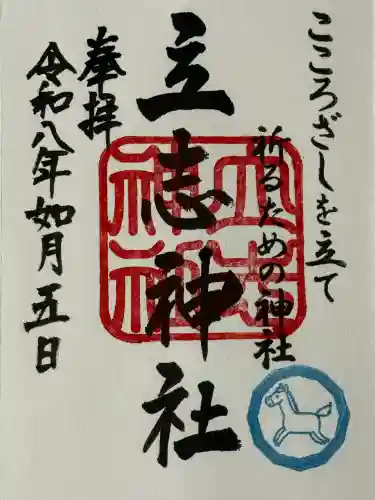 こころざしを立て
祈るための神社
立志神社
奉拝
令和八年如月五日
立志
神社